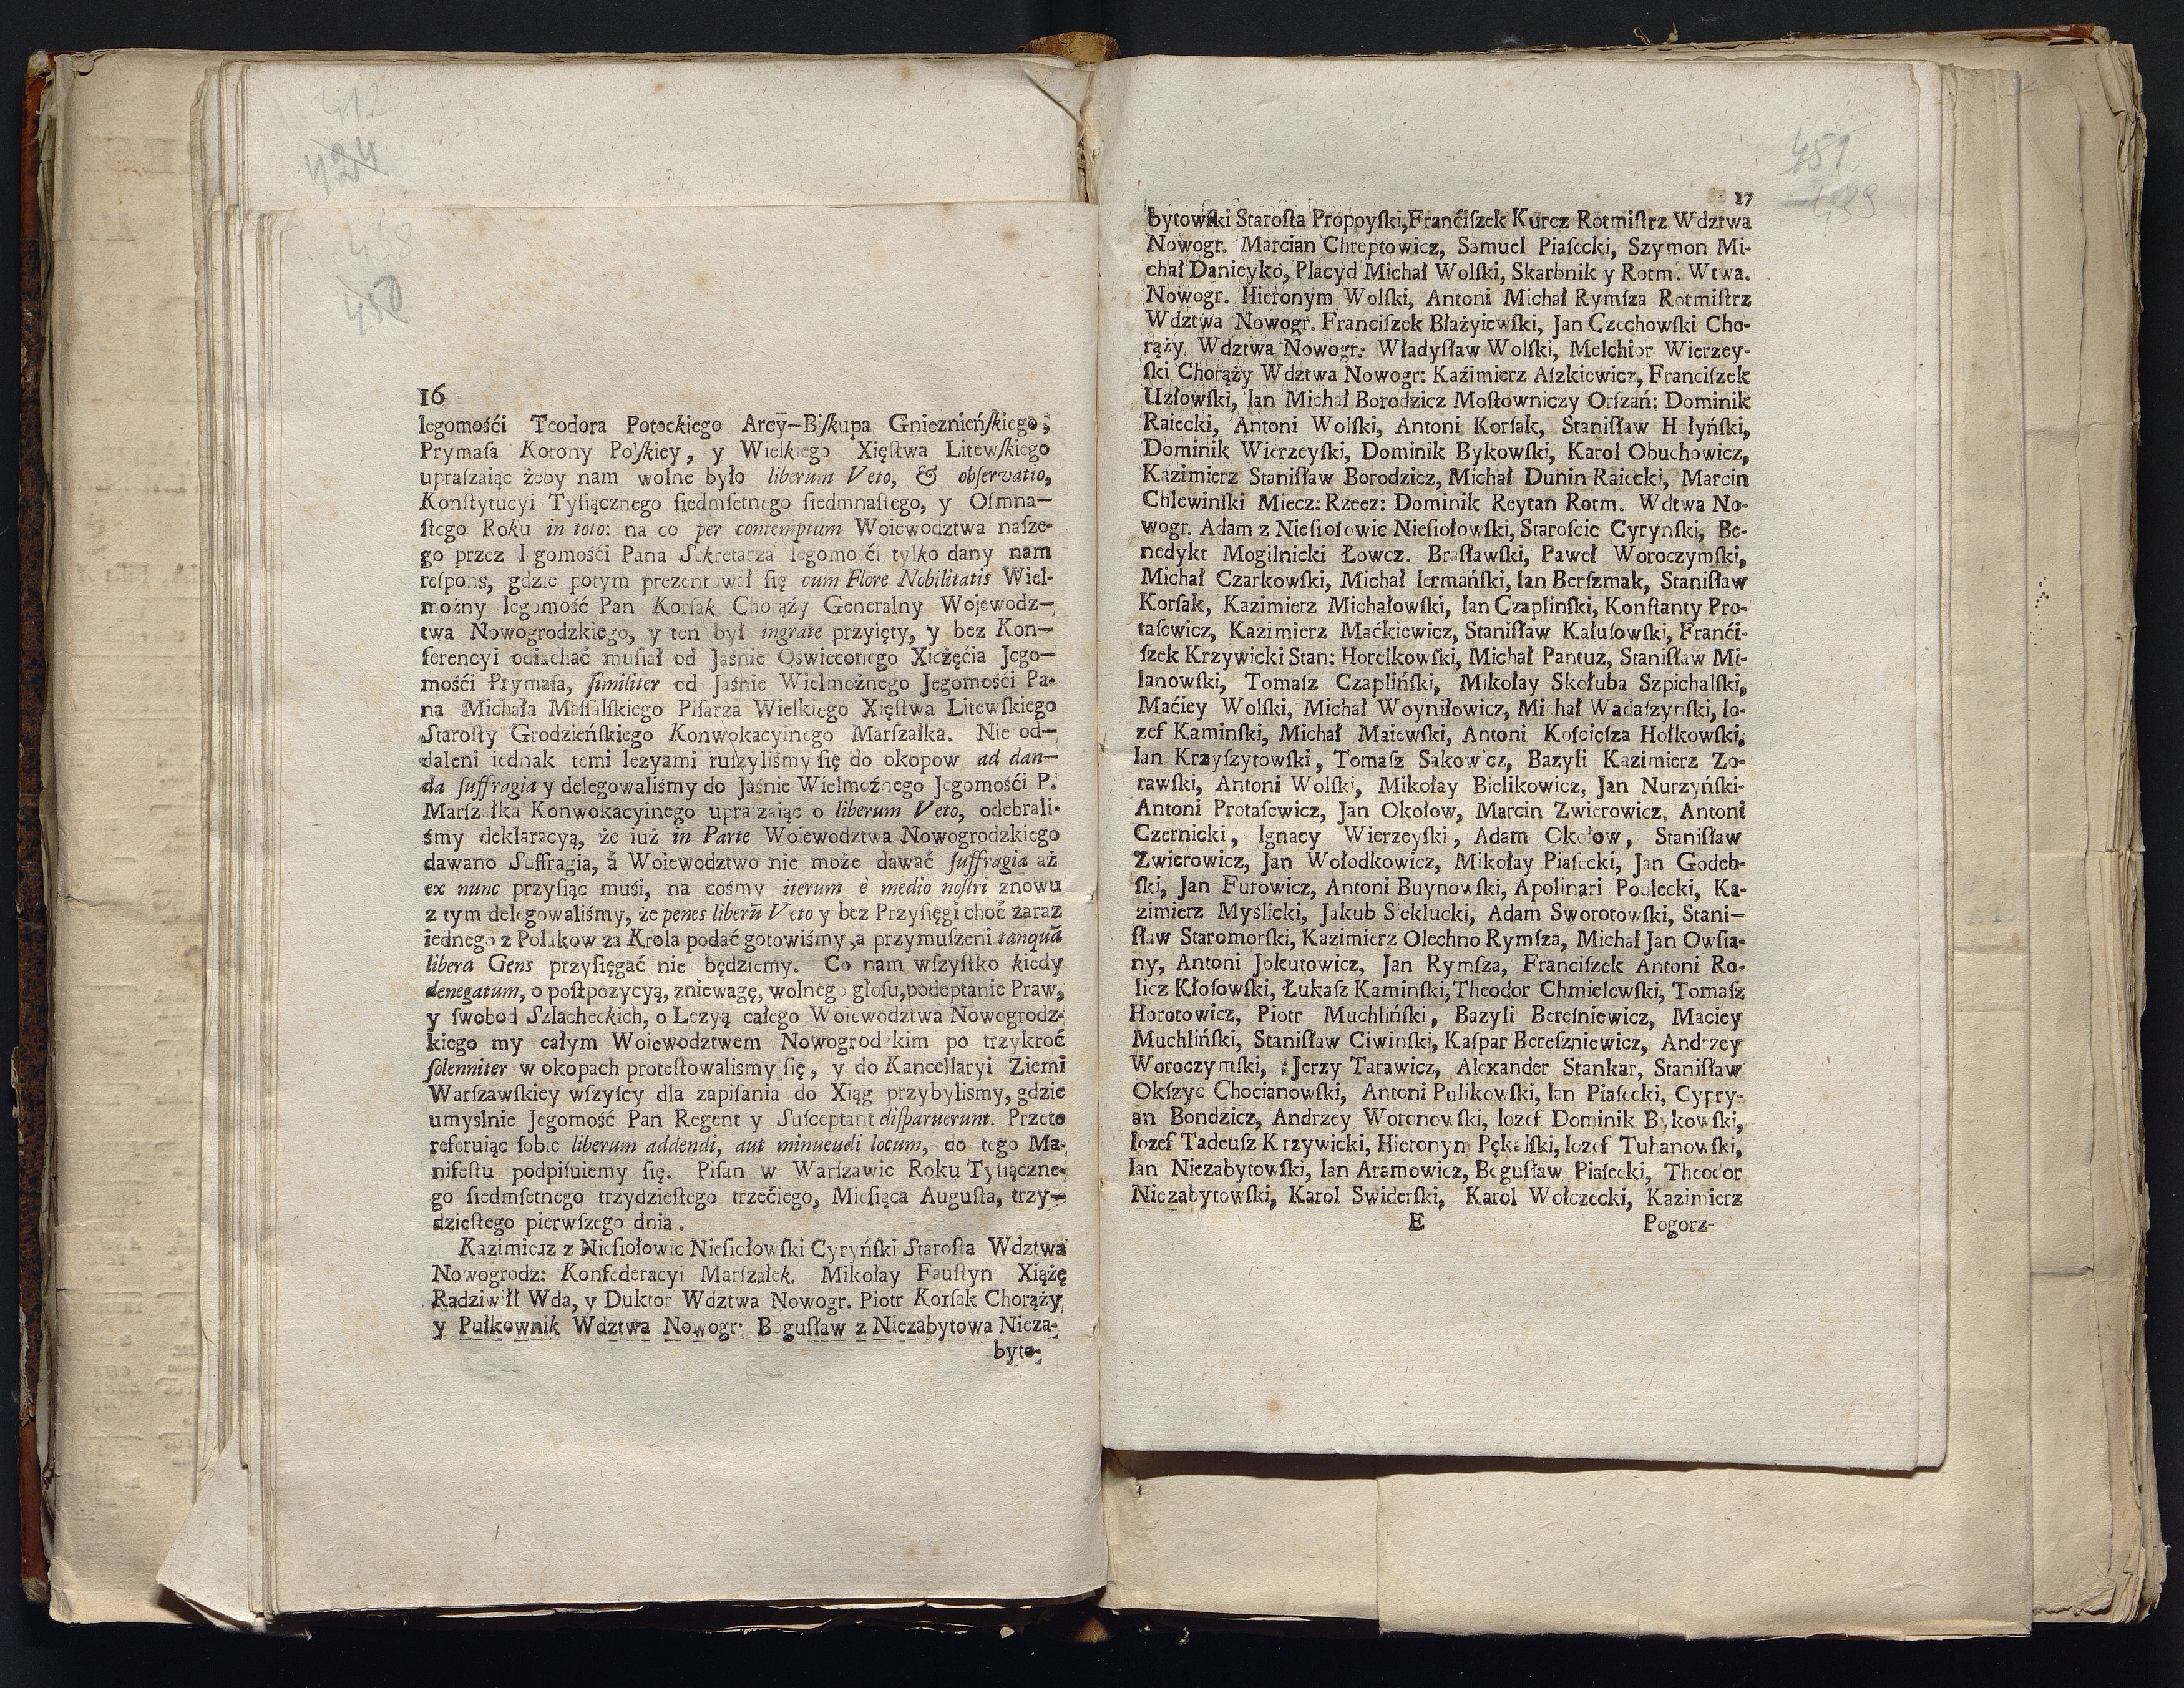 412
424
458
450
16
Iegomośći Teodora Potockiego Arcy-Biſkupa Gnieznieńſkiego,
Prymaſa Korony Polſkiey, y Wielkiego Xięſtwa Litewſkiego
upraſzaiąc żeby nam wolne było liberum Veto, & obſervatio,
Konſtytucyi Tyſiącznego ſiedmſetnego ſiedmnaſtego, y Oſmna-
ſtego Roku in toto: na co per contemptum Woiewodztwa naſze-
go przez Iegomośći Pana Sekretarza Iegomośći tylko dany nam
reſpons, gdzie potym prezentował ſię cum Flore Nobilitatis Wiel-
możny Iegomość Pan Korſak Chorąży Generalny Wojewodz-
twa Nowogrodzkiego, y ten był ingratè przyięty, y bez Kon-
ferencyi odiachać muſiał od Jaśnie Oświeconego Xiężęćia Jego-
mośći Prymaſa, ſimiliter od Jaśnie Wielmożnego Jegomośći Pa-
na Michała Maſſalſkiego Piſarza Wielkiego Xięſtwa Litewſkiego
Staroſty Grodzieńſkiego Konwokacyinego Marſzałka. Nie od-
daleni iednak temi lezyami ruſzyliśmy ſię do okopow ad dan-
da ſuffragia y delegowaliśmy do Jaśnie Wielmożnego Jegomośći P.
Marſzałka Konwokacyinego upraſzaiąc o liberum Veto, odebrali-
śmy deklaracyą, że iuż in Parte Woiewodztwa Nowogrodzkiego
dawano Suffragia, á Woiewodztwo nie może dawać ſuffragia aż
ex nunc przyſiąc muśi, na cośmy iterum è medio noſtri znowu
z tym delegowaliśmy, że penes liberū Veto y bez Przyſięgi choć zaraz
iednego z Polakow za Krola podać gotowiśmy, a przymuſzeni tanquā
libera Gens przyſięgać nie będziemy. Co nam wſzyſtko kiedy
denegatum, o poſtpozycyą, zniewagę, wolnego głoſu, podeptanie Praw,
y ſwobod Szlacheckich, o Lezyą całego Woiewodztwa Nowogrodz-
kiego my całym Woiewodztwem Nowogrodzkim po trzykroć
ſolenniter w okopach proteſtowalismy ſię, y do Kancellaryi Ziemi
Warſzawſkiey wſzyſcy dla zapiſania do Xiąg przybyliſmy, gdzie
umyslnie Jegomość Pan Regent y Suſceptant diſparuerunt. Przeto
reſeruiąc ſobie liberum addendi, aut minuendi locum, do tego Ma-
nifeſtu podpiſuiemy ſię. Piſan w Warſzawie Roku Tyſiączne-
go ſiedmſetnego trzydzieſtego trzećiego, Mieſiąca Auguſta, trzy-
dzieſtego pierwſzego dnia.
Kazimierz z Nieſiołowic Nieſiołowſki Cyryńſki Staroſta Wdztwa
Nowogrodz: Konfederacyi Marſzałek. Mikołay Fauſtyn Xiążę
Radziwiłł Wda, y Duktor Wdztwa Nowogr. Piotr Korſak Chorąży,
y Pułkownik Wdztwa Nowogr: Boguſław z Niezabytowa Nieza-
byto-
451
439
17
bytowſki Staroſta Propoyſki, Franćiſzek Kurcz Rotmiſtrz Wdztwa
Nowogr. Marcian Chreptowicz, Samuel Piaſecki, Szymon Mi-
chał Danieyko, Placyd Michał Wolſki, Skarbnik y Rotm. Wtwa.
Nowogr. Hieronym Wolſki, Antoni Michał Rymſza Rotmiſtrz
Wdztwa Nowogr. Franciſzek Błażyiewſki, Jan Czechowſki Cho-
rąży Wdztwa Nowogr: Władyſław Wolſki, Melchior Wierzey-
ſki Chorąży Wdztwa Nowogr: Kaźimierz Aſzkiewicz, Franciſzek
Uzłowſki, Ian Michał Borodzicz Moſtowniczy Orſzań: Dominik
Raiecki, Antoni Wolſki, Antoni Korſak, Staniſław Hołyńſki,
Dominik Wierzeyſki, Dominik Bykowſki, Karol Obuchowicz,
Kazimierz Staniſław Borodzicz, Michał Dunin Raiecki, Marcin
Chlewinſki Miecz: Rzecz: Dominik Reytan Rotm. Wdtwa No-
wogr. Adam z Nieſiołowic Nieſiołowſki, Staroſcic Cyrynſki, Be-
nedykt Mogilnicki Łowcz. Braſławſki, Paweł Woroczymſki,
Michał Czarkowſki, Michał Iermańſki, Ian Berſzmak, Staniſław
Korſak, Kazimierz Michałowſki, Ian Czaplinſki, Konſtanty Pro-
taſewicz, Kazimierz Maćkiewicz, Staniſław Kałuſowſki, Franći-
ſzek Krzywicki Stan: Horelkowſki, Michał Pantuz, Staniſław Mi-
lanowſki, Tomaſz Czaplińſki, Mikołay Skołuba Szpichalſki,
Maćiey Wolſki, Michał Woyniłowicz, Michał Wadaſzynſki, Io-
zef Kaminſki, Michał Maiewſki, Antoni Koſcieſza Hołkowſki,
Ian Krzyſzytowſki, Tomaſz Sakowicz, Bazyli Kazimierz Zo-
rawſki, Antoni Wolſki, Mikołay Bielikowicz, Jan Nurzyńſki-
Antoni Protaſewicz, Jan Okołow, Marcin Zwierowicz, Antoni
Czernicki, Ignacy Wierzeyſki, Adam Okołow, Staniſław
Zwierowicz, Jan Wołodkowicz, Mikołay Piaſecki, Jan Godeb-
ſki, Jan Furowicz, Antoni Buynowſki, Apolinari Podlecki, Ka-
zimierz Myślicki, Jakub Sieklucki, Adam Sworotowſki, Stani-
ſław Staromorſki, Kazimierz Olechno Rymſza, Michał Jan Owſia-
ny, Antoni Jokutowicz, Jan Rymſza, Franciſzek Antoni Ro-
licz Kłoſowſki, Łukaſz Kaminſki, Theodor Chmielewſki, Tomaſz
Horotowicz, Piotr Muchlińſki, Bazyli Bereſniewicz, Maciey
Muchlińſki, Staniſław Ciwinſki, Kaſpar Bereſzniewicz, Andrzey
Woroczymſki, Jerzy Tarawicz, Alexander Stankar, Staniſław
Okſzyc Chocianowſki, Antoni Pulikowſki, Ian Piaſecki, Cypry-
an Bondzicz, Andrzey Woronowſki, Iozef Dominik Bykowſki,
Iozef Tadeuſz Krzywicki, Hieronym Pękalſki, Iozef Tuhanowſki,
Ian Niezabytowſki, Ian Aramowicz, Boguſław Piaſecki, Theodor
Niezabytowſki, Karol Swiderſki, Karol Wołczecki, Kazimierz
E Pogorz-